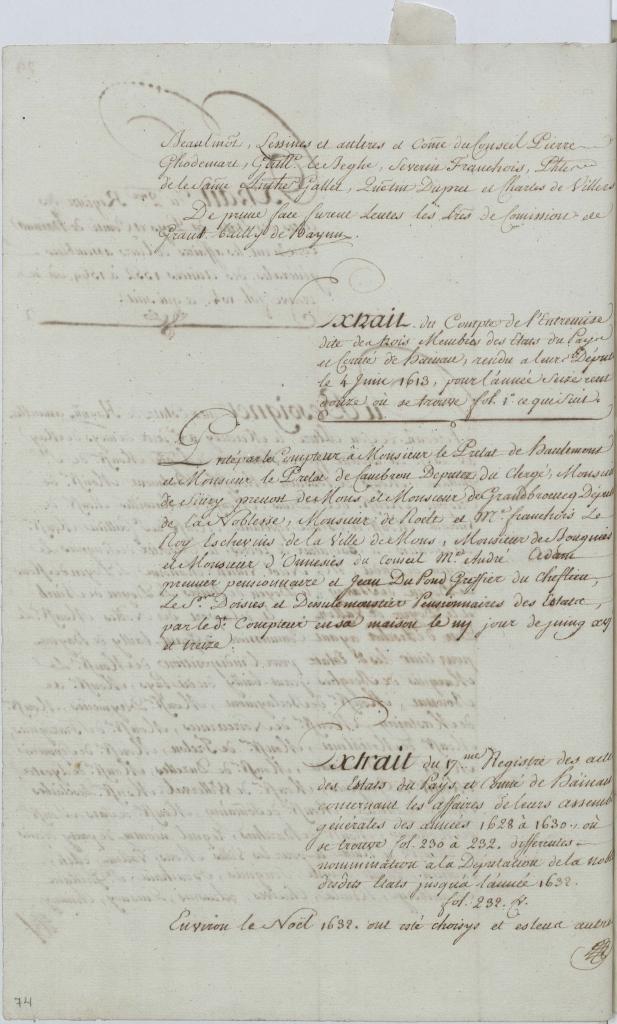 Beaulmõt, Lessines et aultres et Cõme du Conseil Pierre
Ghodemart, Guille. le Beghe, Severin Franchois, Phle
de le Sãme, Anthe. Gallet, Quintin Dupret et Charles de Villers
De prime face furent leutes les Lrẽs de Comission de
Grand Bailly de Haynn.
Extrait du Compte de l'Entremise
dite des trois Membres des Etats du Pays
et Comté de Hainau, rendu a leurs Députés
le 4 Juin 1613, pour l'année seize cent
douze où se trouve fol. 1o ce qui suit.
par le Compteur à Monsieur le Prelat de Haulemont
et Monsieur le Prelat de Cambron Deputez du Clergé, Monsieur
de Sivry prevost de Mons et Monsieur de Grandbroucq Députés
de la Noblesse, Monsieur de et Mre. franchois Le
Roy Eschevins de la Ville de Mons, Monsieur de Bougnies
et Monsieur d'Onnesies du Conseil Mre. André Adam
premier pensionnaire et Jean Du Pond Greffier du Cheflieu,
Le Sr. Dorsus et Pensionnaires des Estats,
par le dt. Compteur en sa maison le iiij jour de juing xvj
et treize.
Extrait du 17.me Registre des actes
des Estats du Pays et Comté de Hainau
concernant les affaires de leurs assemblées
générales des années 1628 à 1630., où
se trouve fol. 230 à 232. differentes
nominination à la Députation de la noblesse
desdits Etats jusqu'à l'année 1632.
fol. 232. v.
Environ le Noël 1632. ont esté choisys et esleuz aultres
74